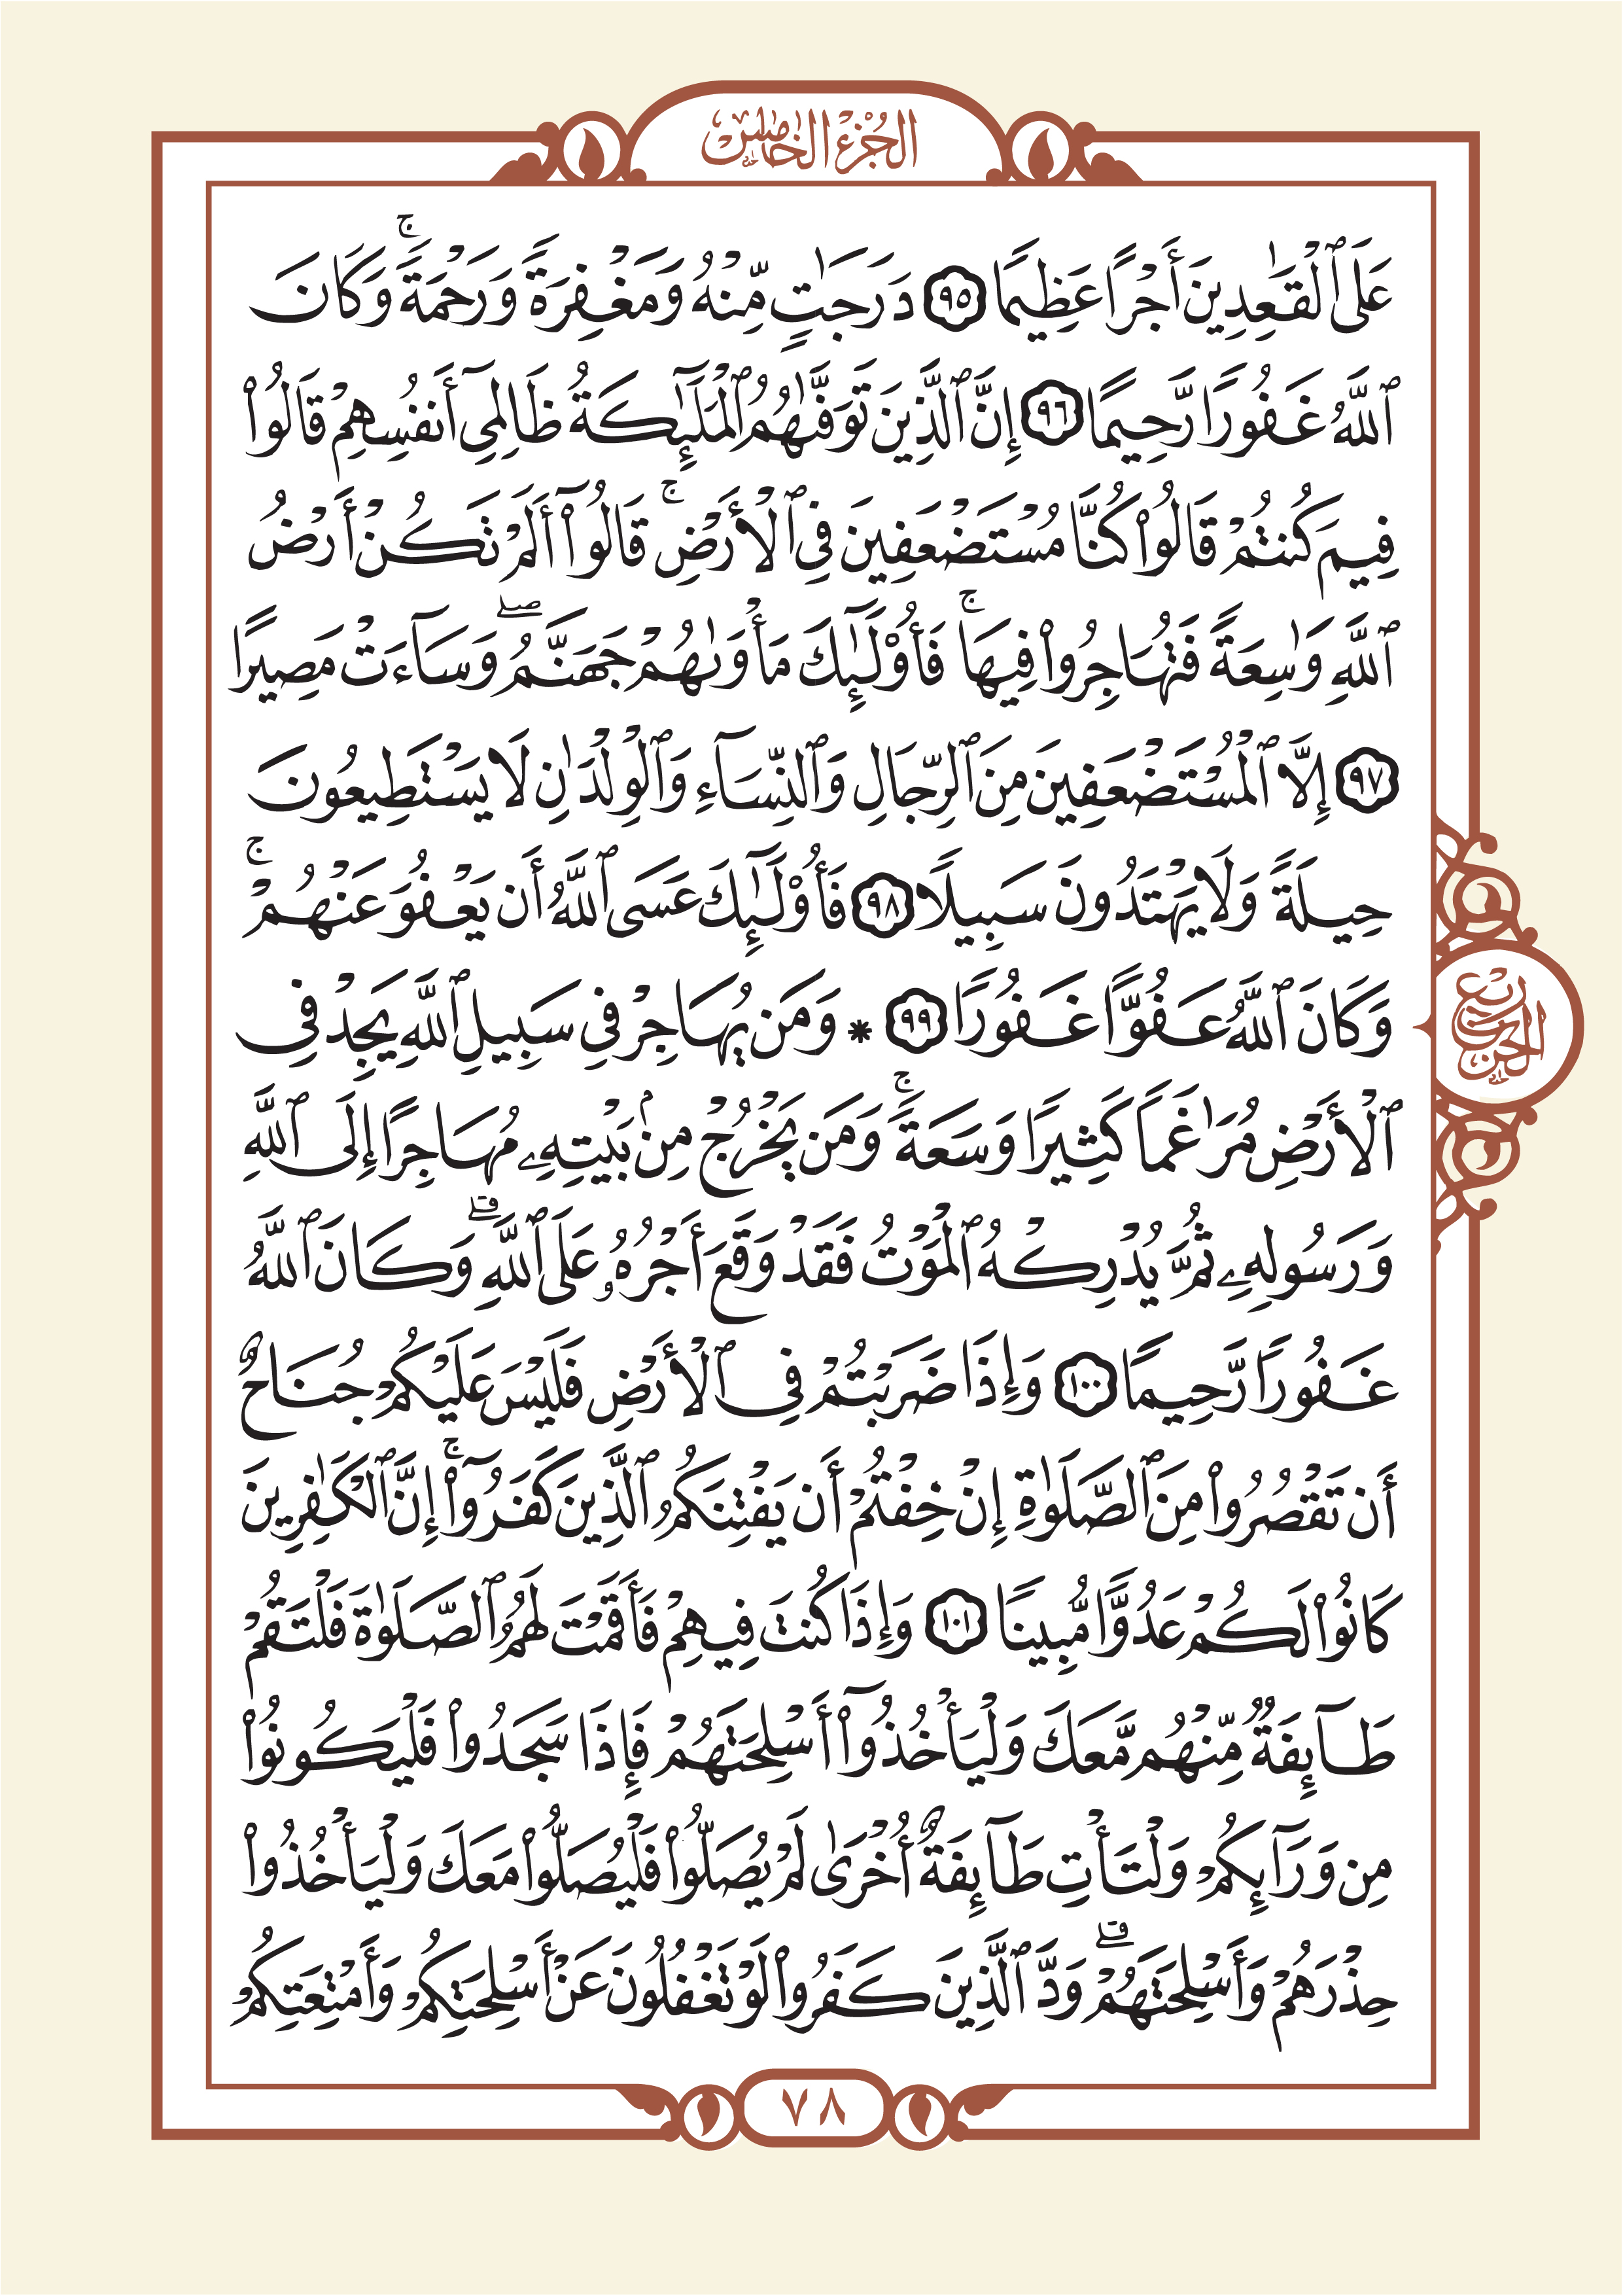 الجزء الخامس
عَلَى ٱلْقَٰعِدِينَ أَجْرًا عَظِيمًا ٩٥ دَرَجَٰتٍ مِّنْهُ وَمَغْفِرَةً وَرَحْمَةً ۚ وَكَانَ
ٱللَّهُ غَفُورًا رَّحِيمًا ٩٦ إِنَّ ٱلَّذِينَ تَوَفَّىٰهُمُ ٱلْمَلَٰٓئِكَةُ ظَالِمِىٓ أَنفُسِهِمْ قَالُوا۟
فِيمَ كُنتُمْ قَالُوا۟ كُنَّا مُسْتَضْعَفِينَ فِى ٱلْأَرْضِ ۚ قَالُوٓا۟ أَلَمْ تَكُنْ أَرْضُ
ٱللَّهِ وَٰسِعَةً فَتُهَاجِرُوا۟ فِيهَا ۚ فَأُو۟لَٰٓئِكَ مَأْوَىٰهُمْ جَهَنَّمُ ۖ وَسَآءَتْ مَصِيرًا
٩٧ إِلَّا ٱلْمُسْتَضْعَفِينَ مِنَ ٱلرِّجَالِ وَٱلنِّسَآءِ وَٱلْوِلْدَٰنِ لَا يَسْتَطِيعُونَ
حِيلَةً وَلَا يَهْتَدُونَ سَبِيلًا ٩٨ فَأُو۟لَٰٓئِكَ عَسَى ٱللَّهُ أَن يَعْفُوَ عَنْهُمْ ۚ
وَكَانَ ٱللَّهُ عَفُوًّا غَفُورًا ٩٩ * وَمَن يُهَاجِرْ فِى سَبِيلِ ٱللَّهِ يَجِدْ فِى
ربع الحزب
ٱلْأَرْضِ مُرَٰغَمًا كَثِيرًا وَسَعَةً ۚ وَمَن يَخْرُجْ مِنۢ بَيْتِهِۦ مُهَاجِرًا إِلَى ٱللَّهِ
وَرَسُولِهِۦ ثُمَّ يُدْرِكْهُ ٱلْمَوْتُ فَقَدْ وَقَعَ أَجْرُهُۥ عَلَى ٱللَّهِ ۗ وَكَانَ ٱللَّهُ
غَفُورًا رَّحِيمًا ١٠٠ وَإِذَا ضَرَبْتُمْ فِى ٱلْأَرْضِ فَلَيْسَ عَلَيْكُمْ جُنَاحٌ
أَن تَقْصُرُوا۟ مِنَ ٱلصَّلَوٰةِ إِنْ خِفْتُمْ أَن يَفْتِنَكُمُ ٱلَّذِينَ كَفَرُوٓا۟ ۚ إِنَّ ٱلْكَٰفِرِينَ
كَانُوا۟ لَكُمْ عَدُوًّا مُّبِينًا ١٠١ وَإِذَا كُنتَ فِيهِمْ فَأَقَمْتَ لَهُمُ ٱلصَّلَوٰةَ فَلْتَقُمْ
طَآئِفَةٌ مِّنْهُم مَّعَكَ وَلْيَأْخُذُوٓا۟ أَسْلِحَتَهُمْ فَإِذَا سَجَدُوا۟ فَلْيَكُونُوا۟
مِن وَرَآئِكُمْ وَلْتَأْتِ طَآئِفَةٌ أُخْرَىٰ لَمْ يُصَلُّوا۟ فَلْيُصَلُّوا۟ مَعَكَ وَلْيَأْخُذُوا۟
حِذْرَهُمْ وَأَسْلِحَتَهُمْ ۗ وَدَّ ٱلَّذِينَ كَفَرُوا۟ لَوْ تَغْفُلُونَ عَنْ أَسْلِحَتِكُمْ وَأَمْتِعَتِكُمْ
٧٨